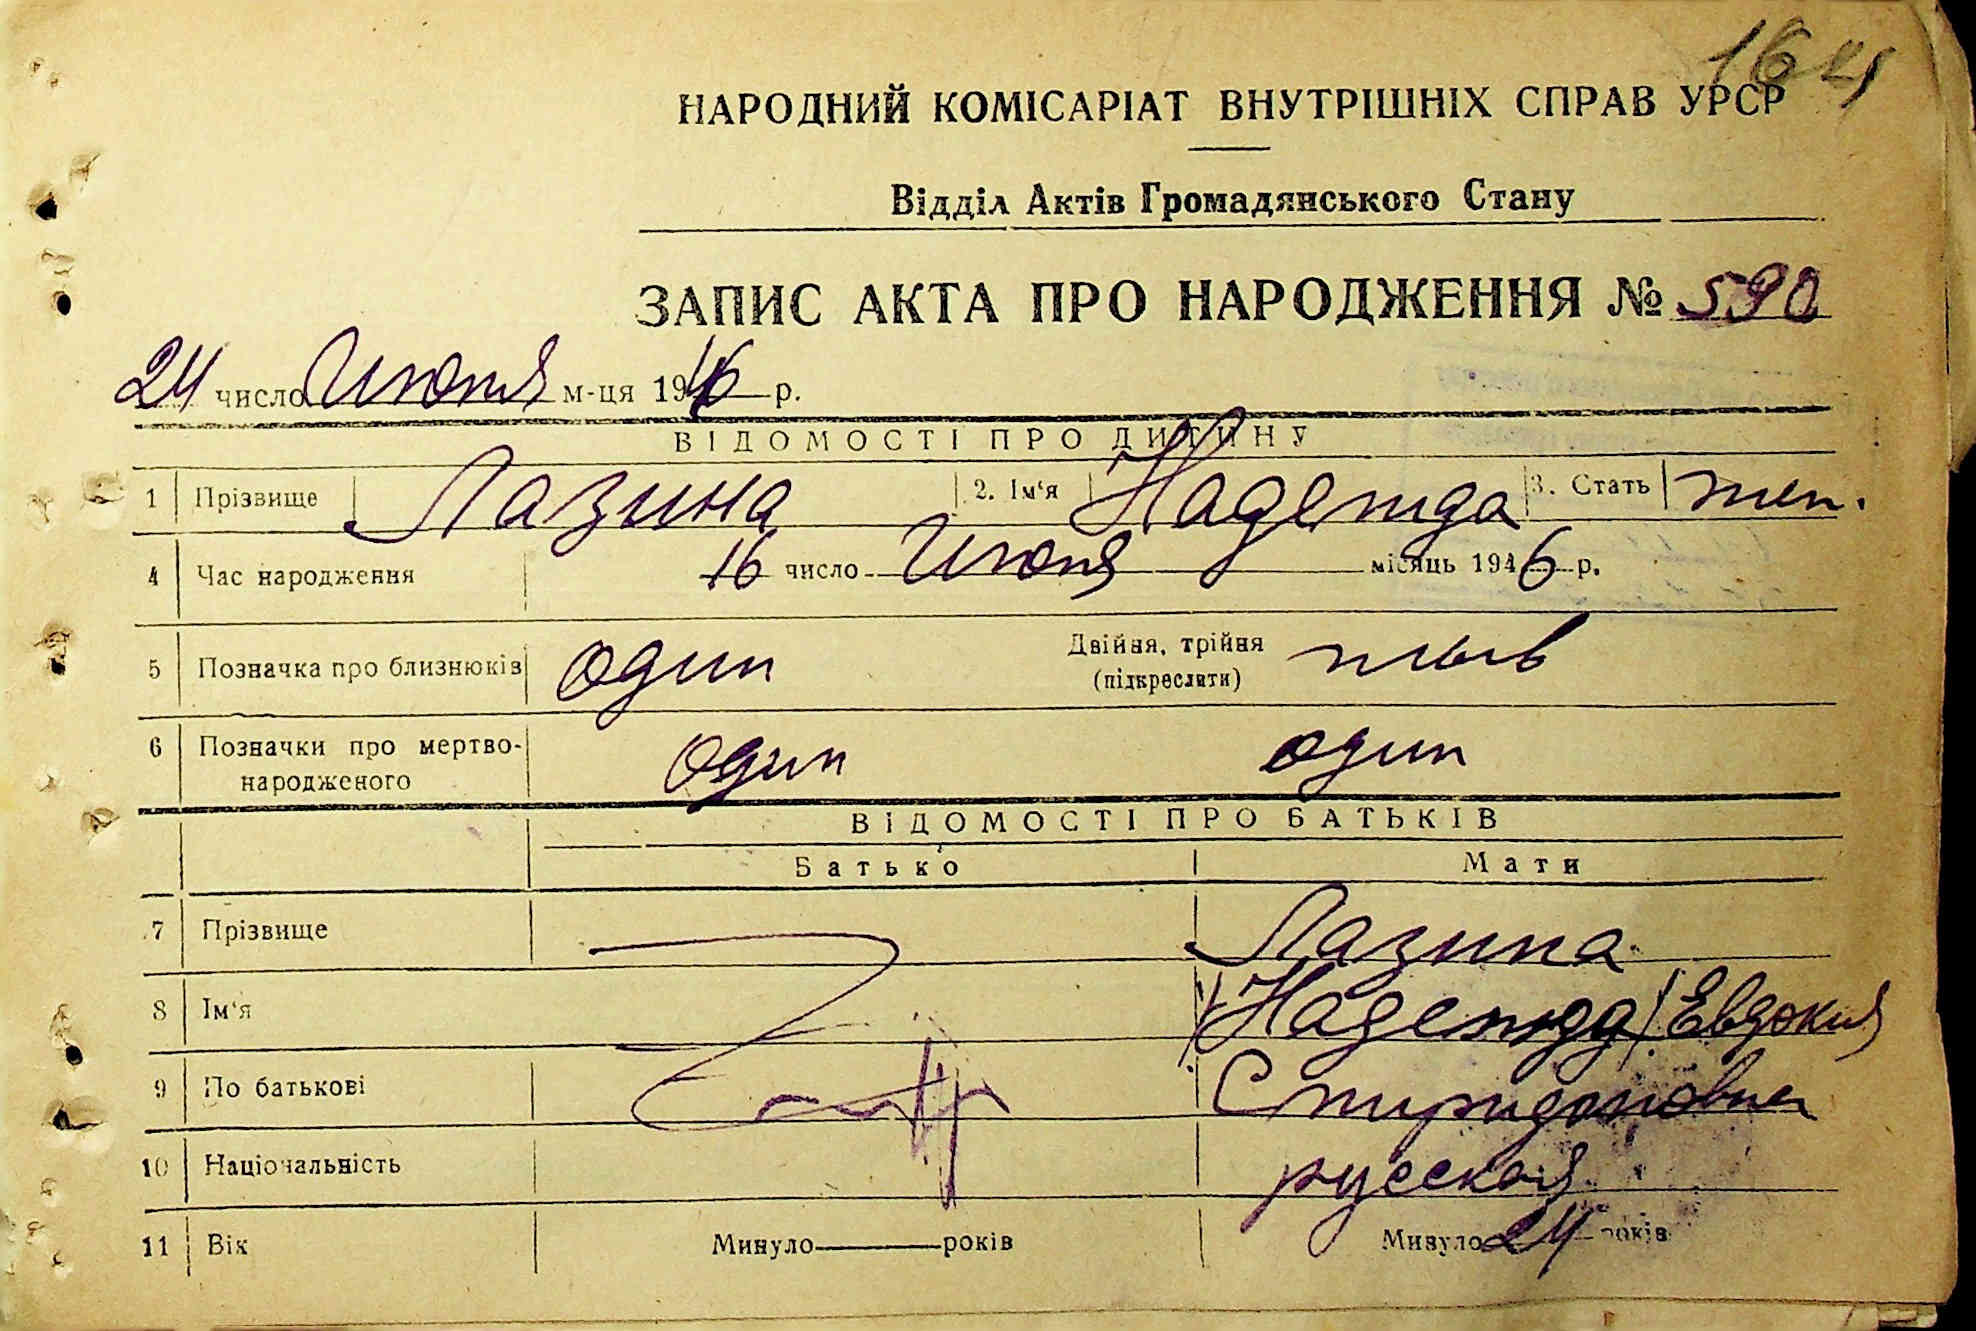 НАРОДНИЙ КОМІСАРІАТ ВНУТРІШНІХ СПРАВ УРСР
Відділ Актів Громадянського Стану
ЗАПИС АКТА ПРО НАРОДЖЕННЯ № 590
24 число Июня м-ця 1946 р.
ВІДОМОСТІ ПРО ДИТИНУ
1 Прізвище Лазина 2. Ім‘я Надежда 3. Стать жен.
4 Час народження 16 число Июня місяць 1946 р.
5 Позначка про близнюків один Двійня, трійня
(підкреслити)
6 Позначки про мертво- один один
народженого
ВІДОМОСТІ ПРО БАТЬКІВ
Батько Мати
7 Прізвище Лазина
8 Ім‘я (Надежда) Евдокия
9 По батькові Спиридоновна
10 Національність русская
11 Вік Минуло років Минуло 24 років